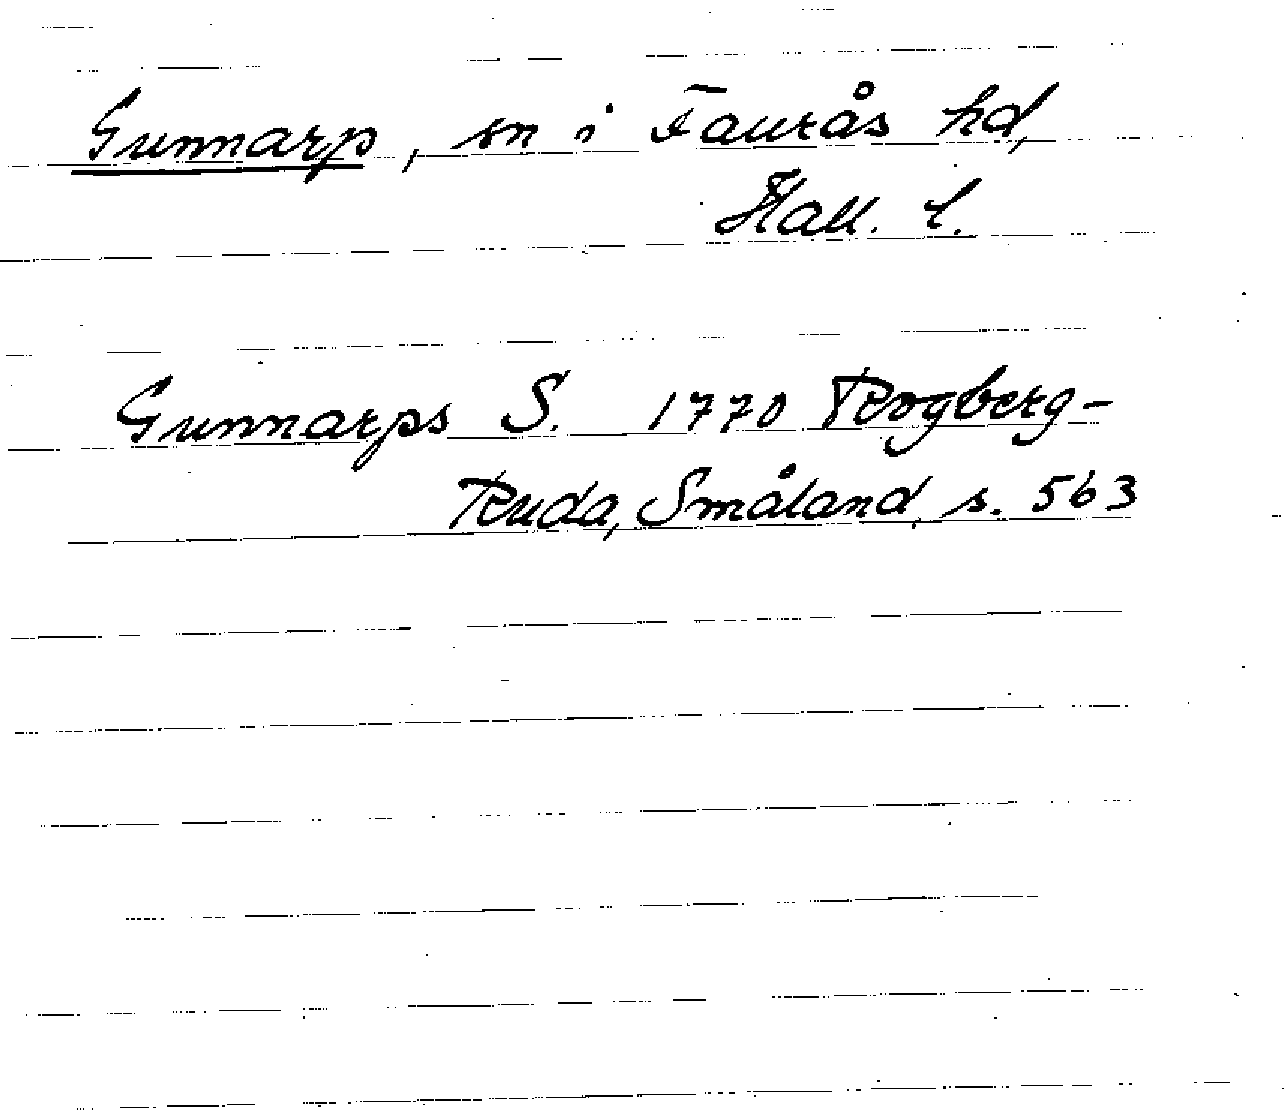 Gunnarp, sn i Faurås hd,
Hall. l.
Gunnarps S. 1770 Rogberg-
Ruda, Småland, s. 563